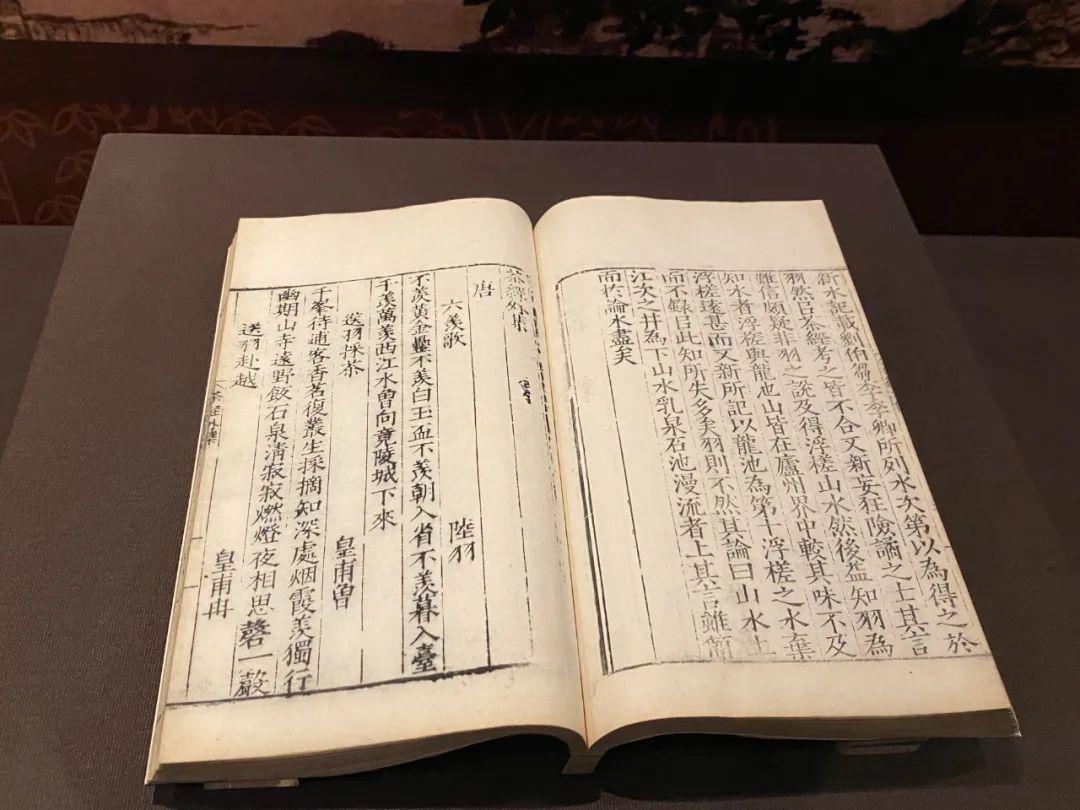 新水記載劉伯芻李季卿所列水次第以為得之於
羽然㠯茶經考之皆不合又新妄狂險譎之士其言
難信頗疑非羽之說及得浮槎山水然後益知羽為
知水者浮槎與龍池山皆在廬州界中較其味不及
浮槎遠甚而又新所記以龍池為第十浮槎之水棄
而不錄㠯此知所失多矣羽則不然其論曰山水上
江次之井為下山水乳泉石池漫流者上其言雖簡
而扵論水盡矣
茶經外集
唐
六羨歌 陸羽
不羨黃金罍不羨白玉盃不羨朝入省不羨暮入臺
千羨萬羨西江水曾向竟陵城下來
送羽採茶 皇甫曾
千峯待逋客香茗復叢生採摘知深處烟霞羨獨行
幽期山寺遠野飯石泉清寂寂燃燈夜相思磬一聲
送羽赴越 皇甫冉
茶經外集